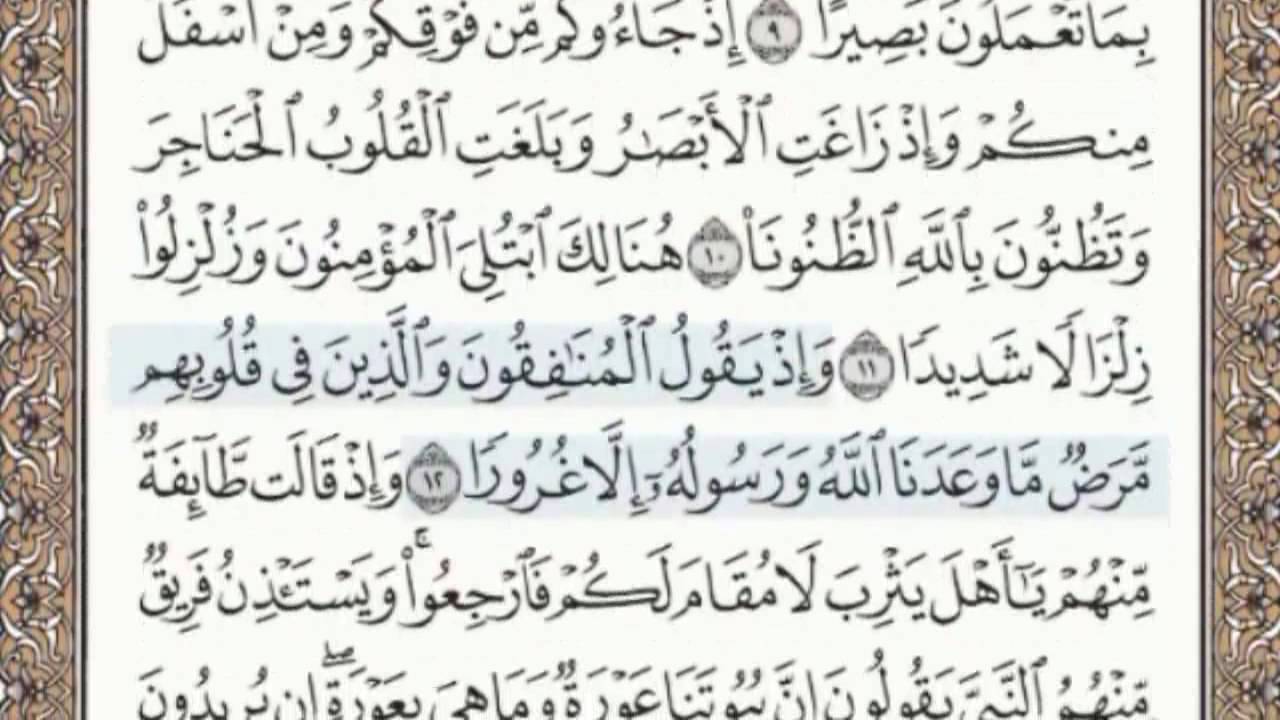 بِمَا تَعْمَلُونَ بَصِيرًا ٩ إِذْ جَآءُوكُم مِّن فَوْقِكُمْ وَمِنْ أَسْفَلَ
مِنكُمْ وَإِذْ زَاغَتِ ٱلْأَبْصَٰرُ وَبَلَغَتِ ٱلْقُلُوبُ ٱلْحَنَاجِرَ
وَتَظُنُّونَ بِٱللَّهِ ٱلظُّنُونَا۠ ١٠ هُنَالِكَ ٱبْتُلِىَ ٱلْمُؤْمِنُونَ وَزُلْزِلُوا۟
زِلْزَالًا شَدِيدًا ١١ وَإِذْ يَقُولُ ٱلْمُنَٰفِقُونَ وَٱلَّذِينَ فِى قُلُوبِهِم
مَّرَضٌ مَّا وَعَدَنَا ٱللَّهُ وَرَسُولُهُۥٓ إِلَّا غُرُورًا ١٢ وَإِذْ قَالَت طَّآئِفَةٌ
مِّنْهُمْ يَٰٓأَهْلَ يَثْرِبَ لَا مُقَامَ لَكُمْ فَٱرْجِعُوا۟ ۚ وَيَسْتَـْٔذِنُ فَرِيقٌ
مِّنْهُمُ ٱلنَّبِىَّ يَقُولُونَ إِنَّ بُيُوتَنَا عَوْرَةٌ وَمَا هِىَ بِعَوْرَةٍ ۖ إِن يُرِيدُونَ